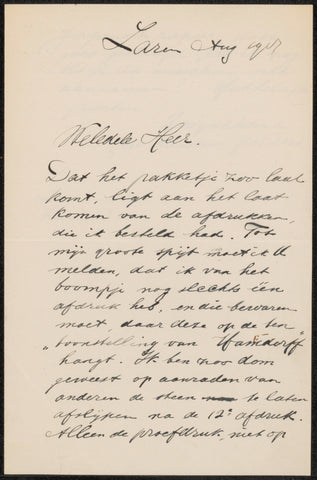 Laren Aug 19
Weledele Heer.
Dat het pakketje zoo laat
komt, ligt aan het laat
komen van de afdrukken,
die ik besteld had. Tot
mijn groote spijt moet ik U
melden, dat ik van het
boompje nog slechts één
afdruk heb, en die bewaren
moet, daar deze op de ten
"toonstelling van Hamdorff
hangt. Ik ben zoo dom
geweest op aanraden van
anderen de steen te laten
afslijpen na de 12e afdruk.
Alleen de proefdruk, niet op